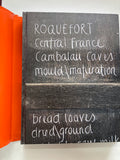 ROQUEFORT
Central France
Cambalou Caves
mould/maturation
bread loaves
dried/ground